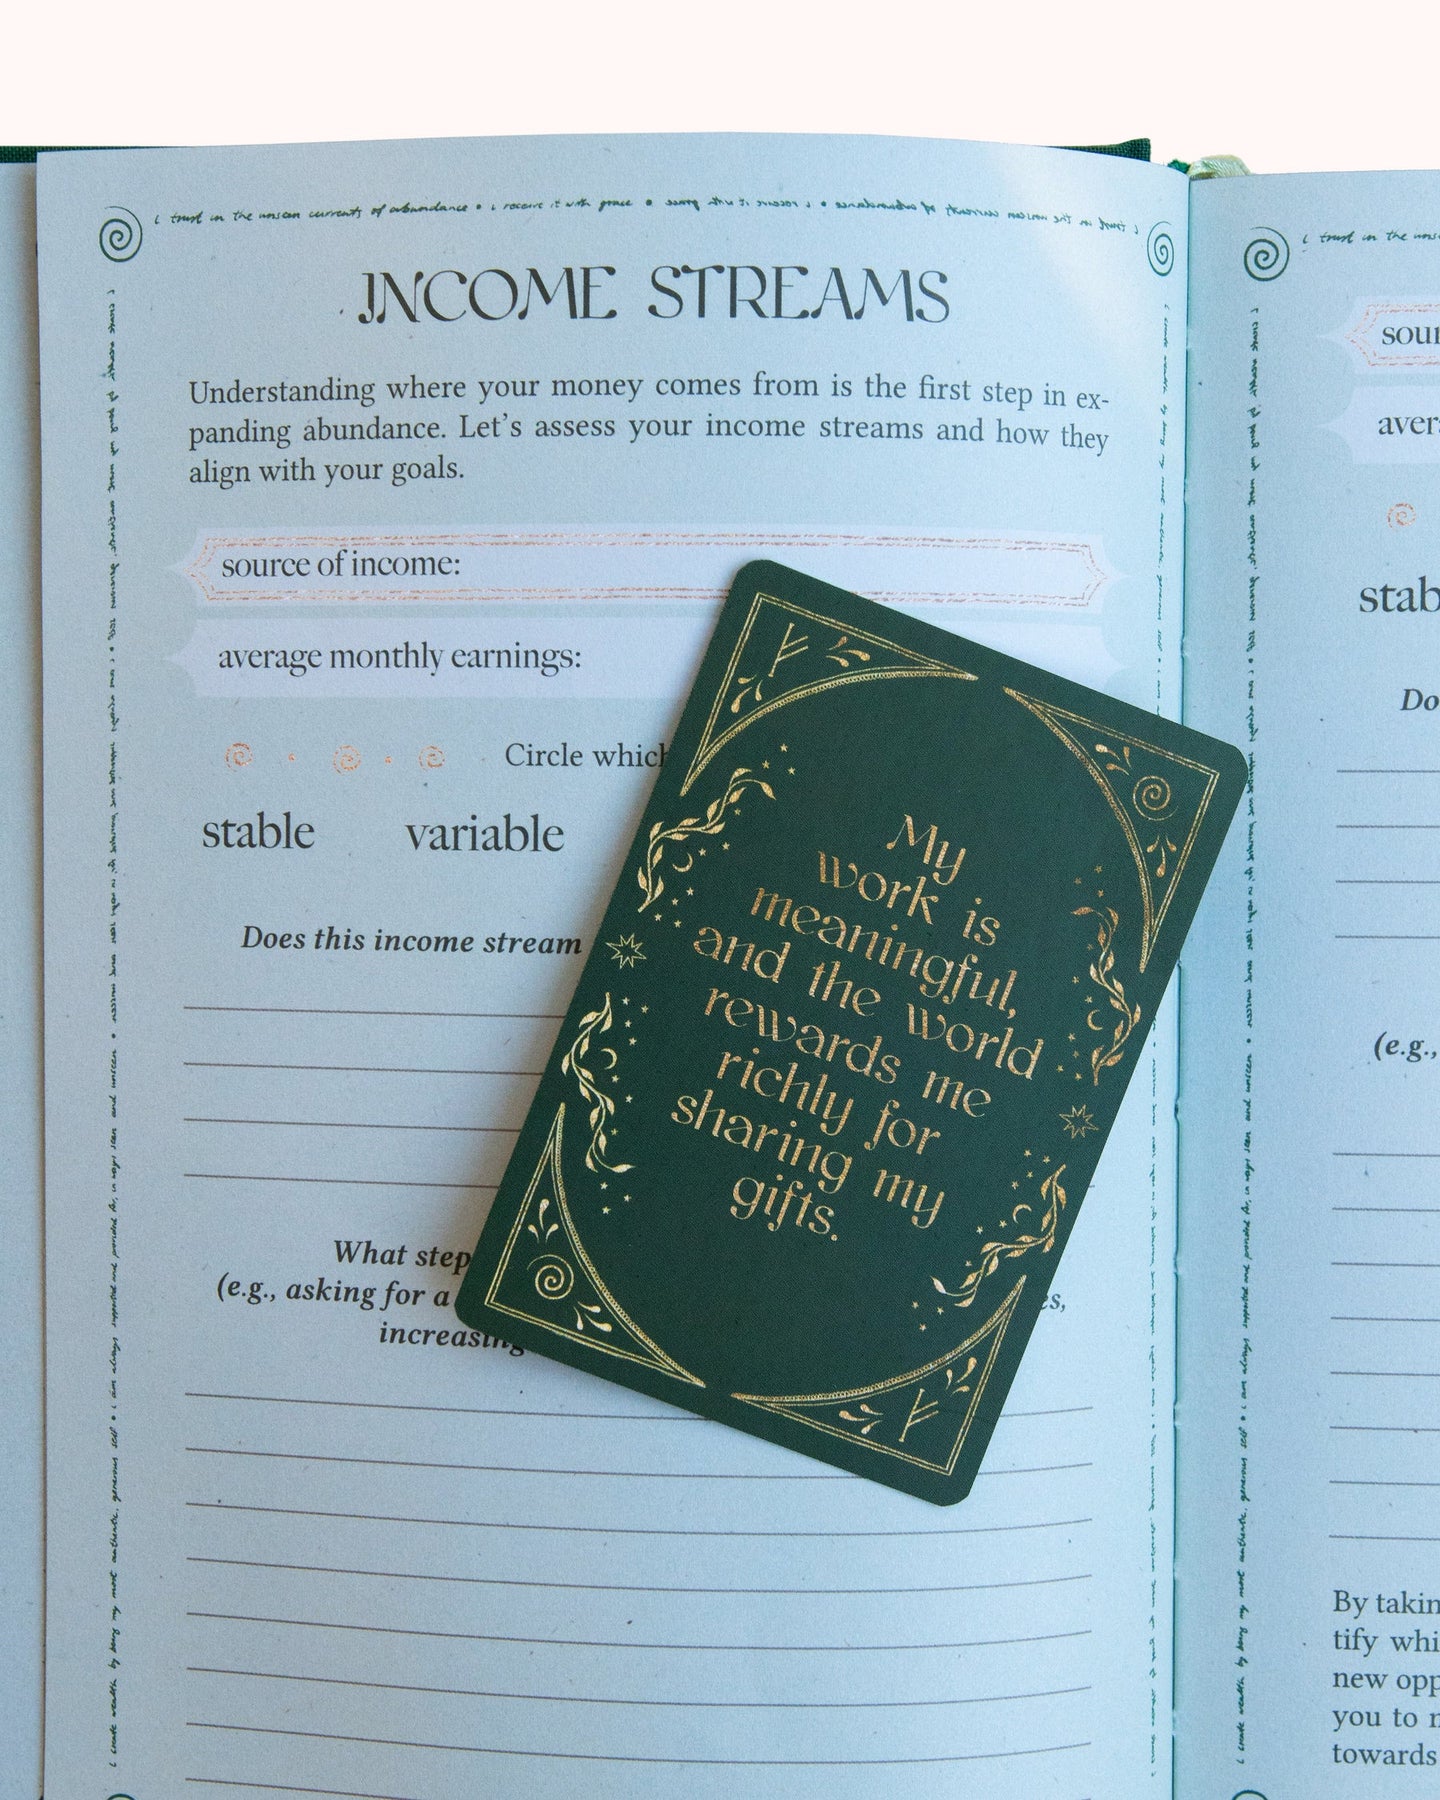 i trust in the unseen currents of abundance • i receive it with grace •
INCOME STREAMS
Understanding where your money comes from is the first step in ex-
panding abundance. Let's assess your income streams and how they
align with your goals.
source of income:
average monthly earnings:
Circle which
stable variable
Does this income stream
What step
(e.g., asking for a
es,
increasing
My
work is
meaningful,
and the world
rewards me
richly for
sharing my
gifts.
i trust in the
sour
avera
stab
Do
(e.g.,
By takin
tify whi
new opp
you to
towards